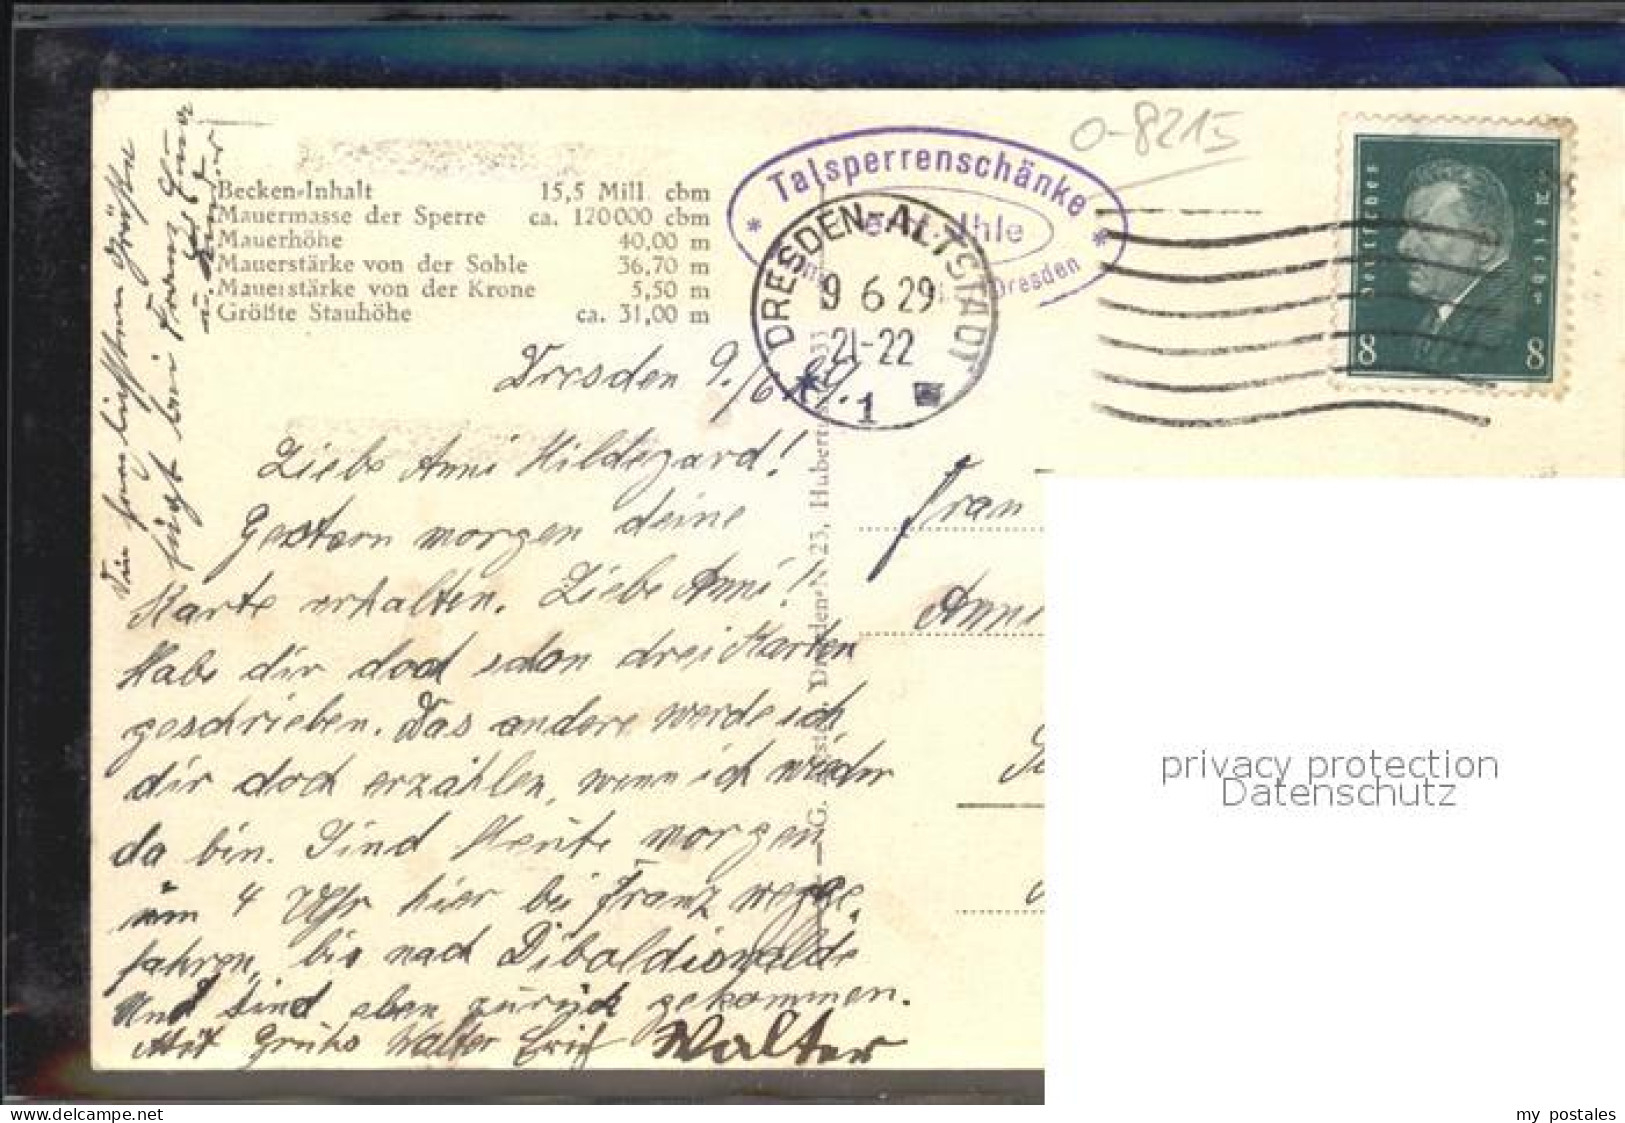 Becken-Inhalt 15,5 Mill. cbm
Mauermasse der Sperre ca. 120000 cbm
Mauerhöhe 40,00 m
Mauerstärke von der Sohle 36,70 m
Mauerstärke von der Krone 5,50 m
Größte Stauhöhe ca. 31,00 m
* Talsperrenschänke *
Ihle
Dresden
DRESDEN-ALTSTADT
9 6 29
21-22
* 1
0-8215
Deutsches Reich
8 8
Dresden 9./6 29.
Liebe Anni Hildegard!
Gestern morgen deine
Karte erhalten. Liebe Anni!
Habe dir doch schon drei Karten
geschrieben. Das andere werde ich
dir doch erzählen, wenn ich wieder
da bin. Sind Heute morgen
um 4 Uhr hier bei Franz wegge-
fahren, bis nach Diboldiswalde
und sind eben zurück gekommen.
Mit Gruhs Walter Erich Walter
herzlichsten Grüße
bei Franz
Dresden-N 23, Hubert
Frau
Anni
privacy protection
Datenschutz
www.delcampe.net
my postales